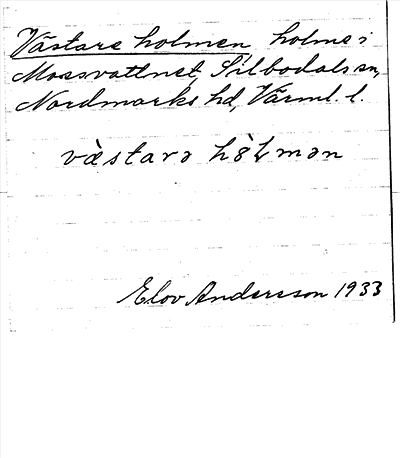 Västare holmen, holme i
Mossvattnet, Silbodals sn,
Nordmarks hd, Värml. l.
västarə hòɫmən
Elov Andersson 1933